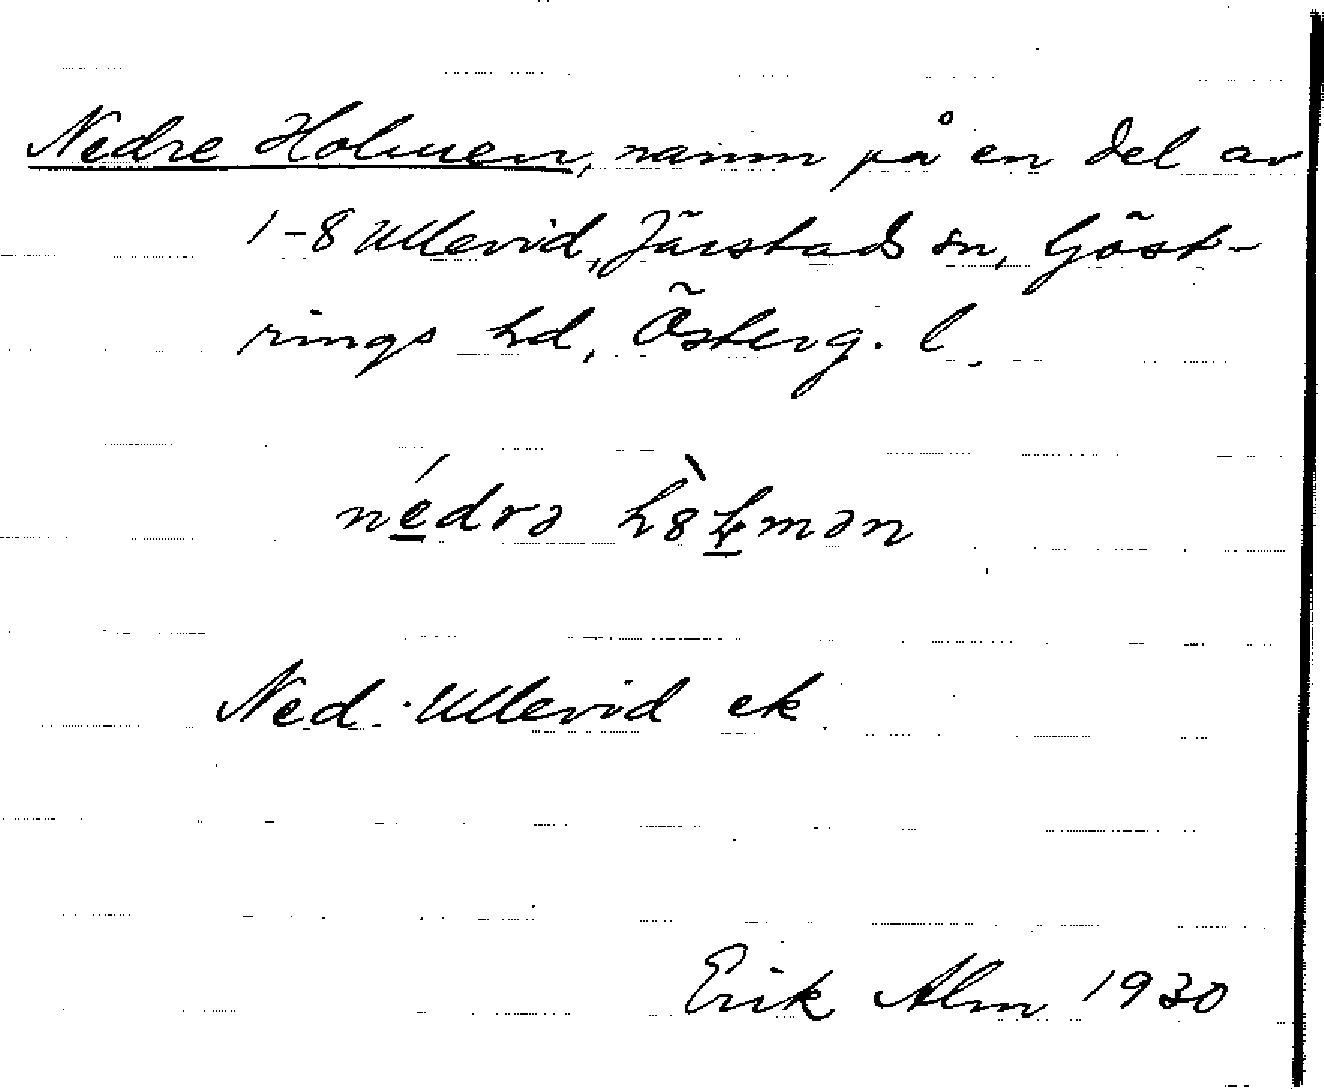 Nedre Holmen, namn på en del av
1-8 Ullevid, Järstads sn, Göst-
rings hd, Österg. l.
nédrə hòlmən
Ned. Ullevid ek
Erik Alm 1930